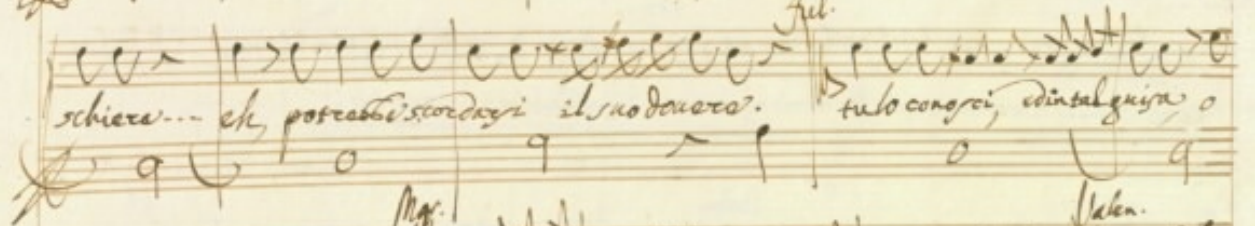 Ful.
schiere... eh, potrebbe scordarsi il suo dovere. tu lo conosci, ed in tal guisa o
Mar. Valen.